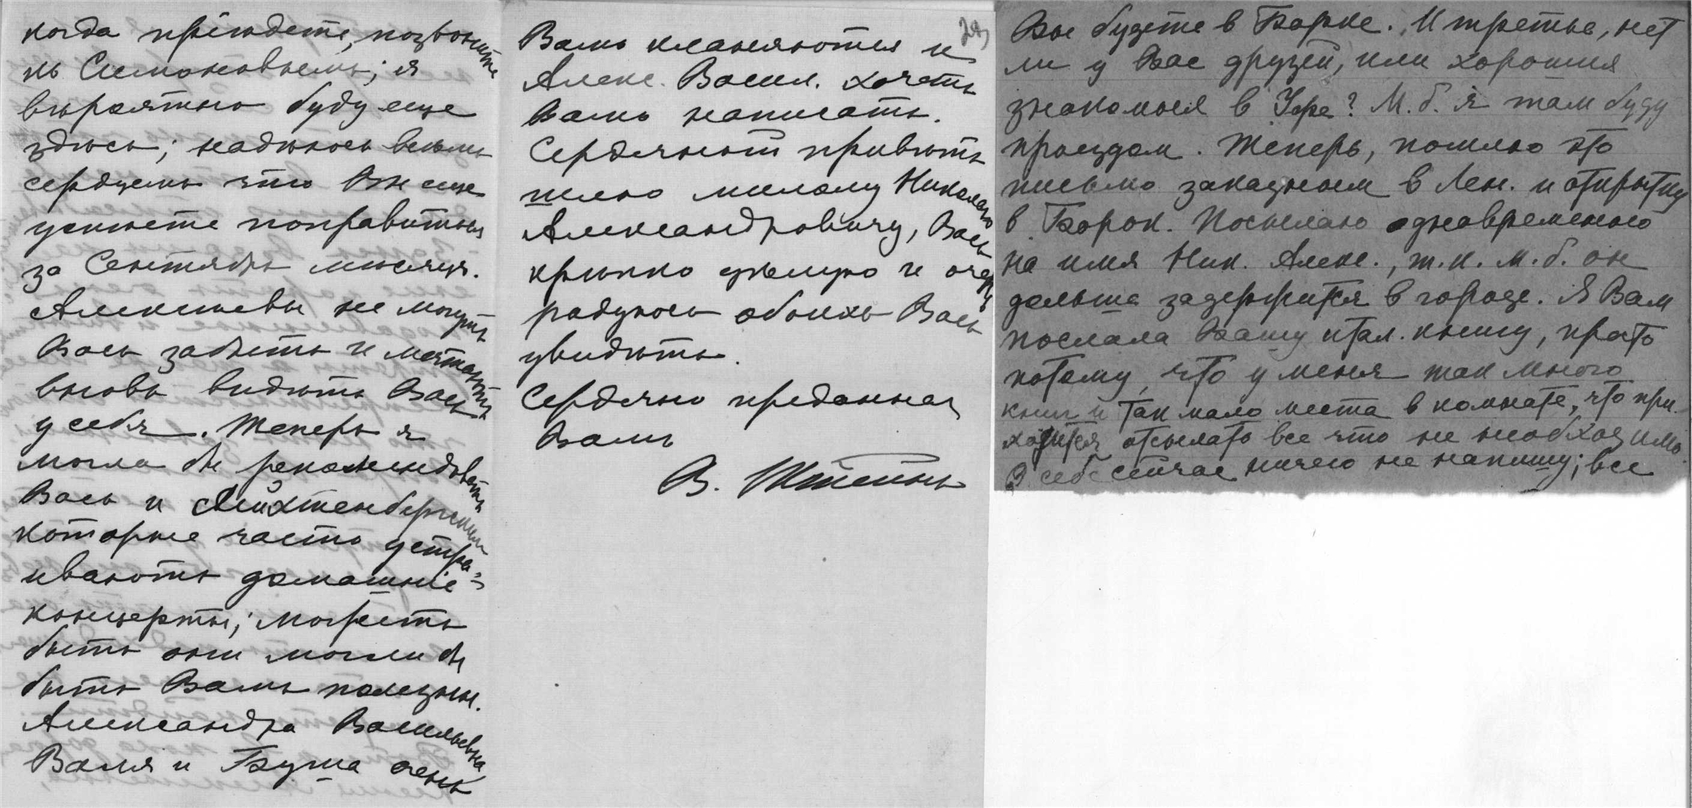 когда пріѣдете, позвоните
къ Симоновымъ; я
вѣроятно буду еще
здѣсь; надѣюсь всѣмъ
сердцемъ что Вы еще
успѣете поправиться
за Сентябрь мѣсяцъ.
Алексѣевы не могутъ
Васъ забыть и мечтаютъ
вновь видѣть Васъ
у себя. Теперь я
могла бы рекомендовать
Васъ и Лейхтенбергскимъ
которые часто устра-
иваютъ домашніе
концерты; можетъ
быть они могли бы
быть Вамъ полезны.
Александра Васильевна
Валя и Буша очень
29
Вамъ кланяются и
Алекс. Васил. хочетъ
Вамъ написать.
Сердечный привѣтъ
шлю милому Николаю
Александровичу, Васъ
крѣпко цѣлую и очень
радуюсь обоихъ Васъ
увидѣть.
Сердечно преданная
Вамъ
В. Штейнъ
Вы будете в Борке. И третье, нет
ли у Вас друзей, или хороших
знакомых в Уфе? М. б. я там буду
проездом. Теперь, пошлю это
письмо заказным в Лен. и открытку
в Борок. Посылаю одновременно
на имя Ник. Алекс., т. к. м. б. он
дольше задержится в городе. Я Вам
послала Вашу итал. книгу, просто
потому, что у меня так много
книг и так мало места в комнате, что при-
ходится отсылать все что не необходимо.
О себе сейчас ничего не напишу; все